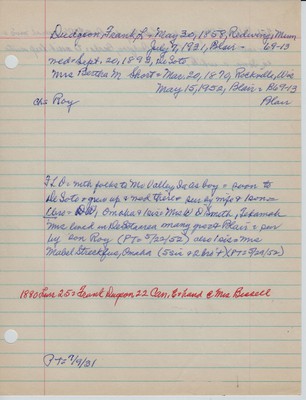 Dudgeon, Frank L = May 30, 1858, Redwing, Minn
July 7, 1931, Blair = 69-13
md = Sept. 20, 1893, DeSoto
Mrs Bertha M. Short = Mar. 20, 1870, Rockdale, Wis
May 15, 1952, Blair = B69-13
Blair
ch = Roy
F L D = with folks to Mo Valley, Ia as boy = soon to
DeSoto = grew up & md there = sur by wife & 1 son =
Omaha & 1 sis = Mrs D Smith, Tekamah
Mrs lived in DeSoto area many yrs = Blair = sur
by son Roy (PT = 5/22/52) also 1 sis = Mrs
Mabel Streckfus, Omaha (5 sis & 2 bro +) (PT = 5/22/52)
1880 Cens 250 = Frank Dugeon 22 Can, & hand @ Mrs Bissell
PT = 7/9/31